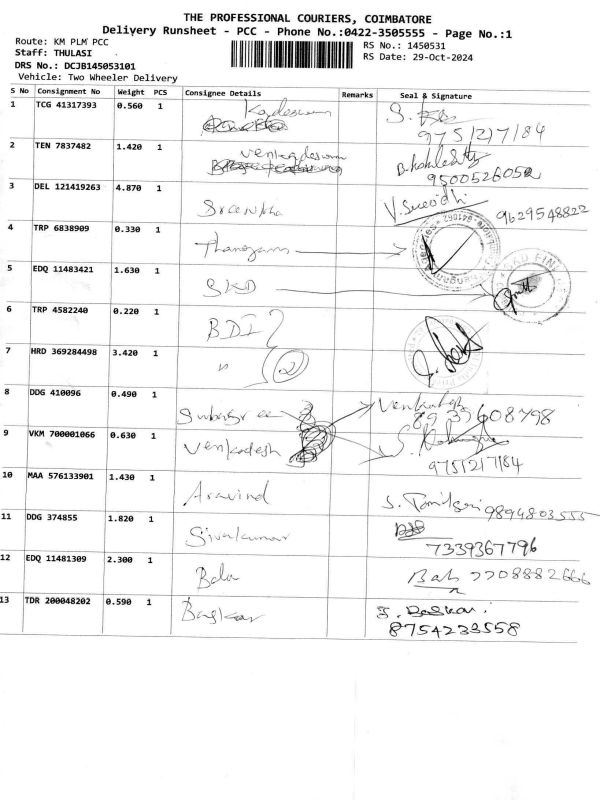 THE PROFESSIONAL COURIERS, COIMBATORE
Delivery Runsheet - PCC - Phone No.:0422-3505555 - Page No.:1
Route: KM PLM PCC
RS No.: 1450531
Staff: THULASI
RS Date: 29-Oct-2024
DRS No.: DCJB145053101
Vehicle: Two Wheeler Delivery
S No Consignment No Weight PCS Consignee Details Remarks Seal & Signature
1 TCG 41317393 0.560 1
9751217184
2 TEN 7837482 1.420 1
9500526052
3 DEL 121419263 4.870 1 V. Sreedhi
9629548822
4 TRP 6838909 0.330 1 Thangam
5 EDQ 11483421 1.630 1 SKD
6 TRP 4582240 0.220 1 BDI
7 HRD 369284498 3.420 1 " 2
8 DDG 410096 0.490 1 Subasree Venkatesh
8937608798
9 VKM 700001066 0.630 1 Venkadesh
9751217184
10 MAA 576133901 1.430 1 Aravind S. Tamilsri 9894803555
11 DDG 374855 1.820 1 Sivakumar
7339367796
12 EDQ 11481309 2.300 1 Bala Bala 7708882666
13 TDR 200048202 0.590 1 Baskar J. Baskar
8754233558